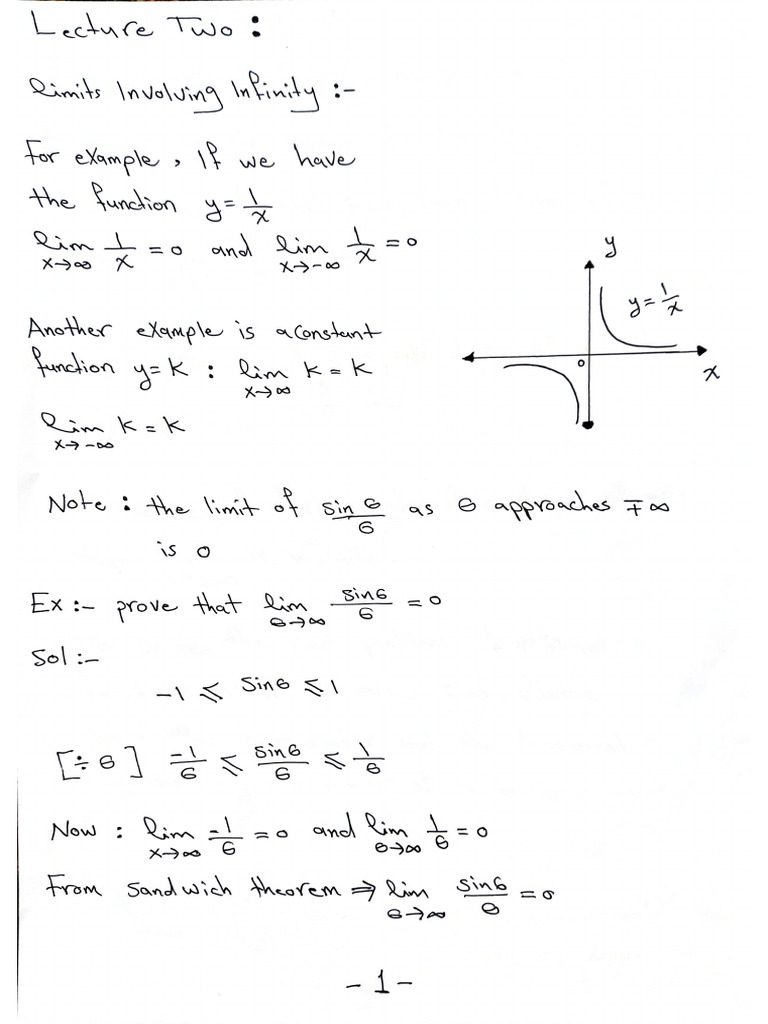 Lecture Two :
Limits Involving Infinity :-
For example, If we have
the function y = 1/x
lim x→∞ 1/x = 0 and lim x→-∞ 1/x = 0
y
y = 1/x
0
x
Another example is a constant
function y = k : lim x→∞ k = k
lim x→-∞ k = k
Note : the limit of sin θ/θ as θ approaches ∓∞
is 0
Ex :- prove that lim θ→∞ sin θ/θ = 0
Sol :-
-1 ⩽ sin θ ⩽ 1
[÷ θ] -1/θ ⩽ sin θ/θ ⩽ 1/θ
Now : lim x→∞ -1/θ = 0 and lim θ→∞ 1/θ = 0
From sandwich theorem ⇒ lim θ→∞ sin θ/θ = 0
- 1 -